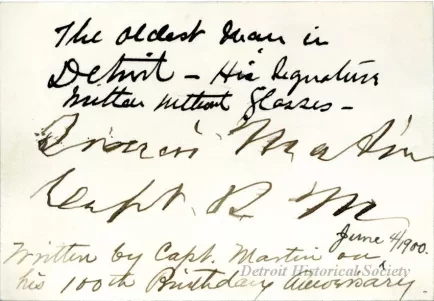 The oldest man in
Detroit — His Signature
Written without Glasses —
Martin
Capt. R. M
June 4/1900.
Written by Capt. Martin on
his 100th Birthday Aniversary.
Detroit Historical Society